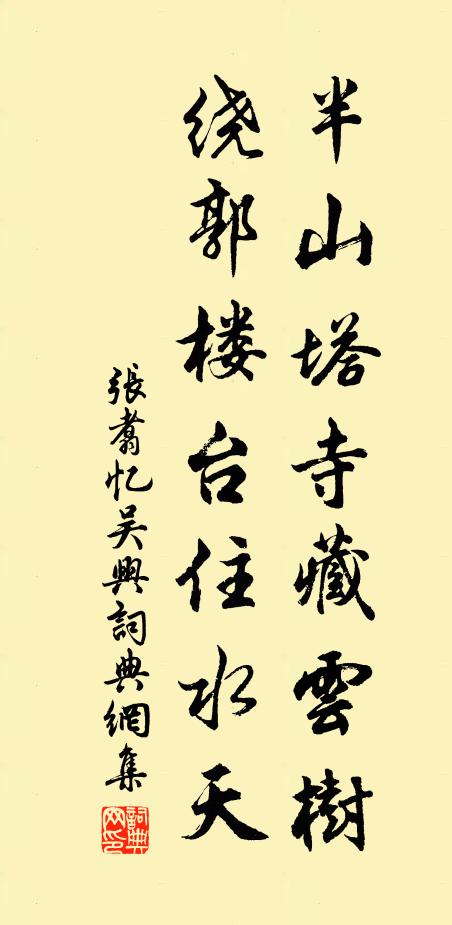 半山塔寺藏雲樹
绕郭楼台住水天
張翥忆吴興詞典網集
詞典网印